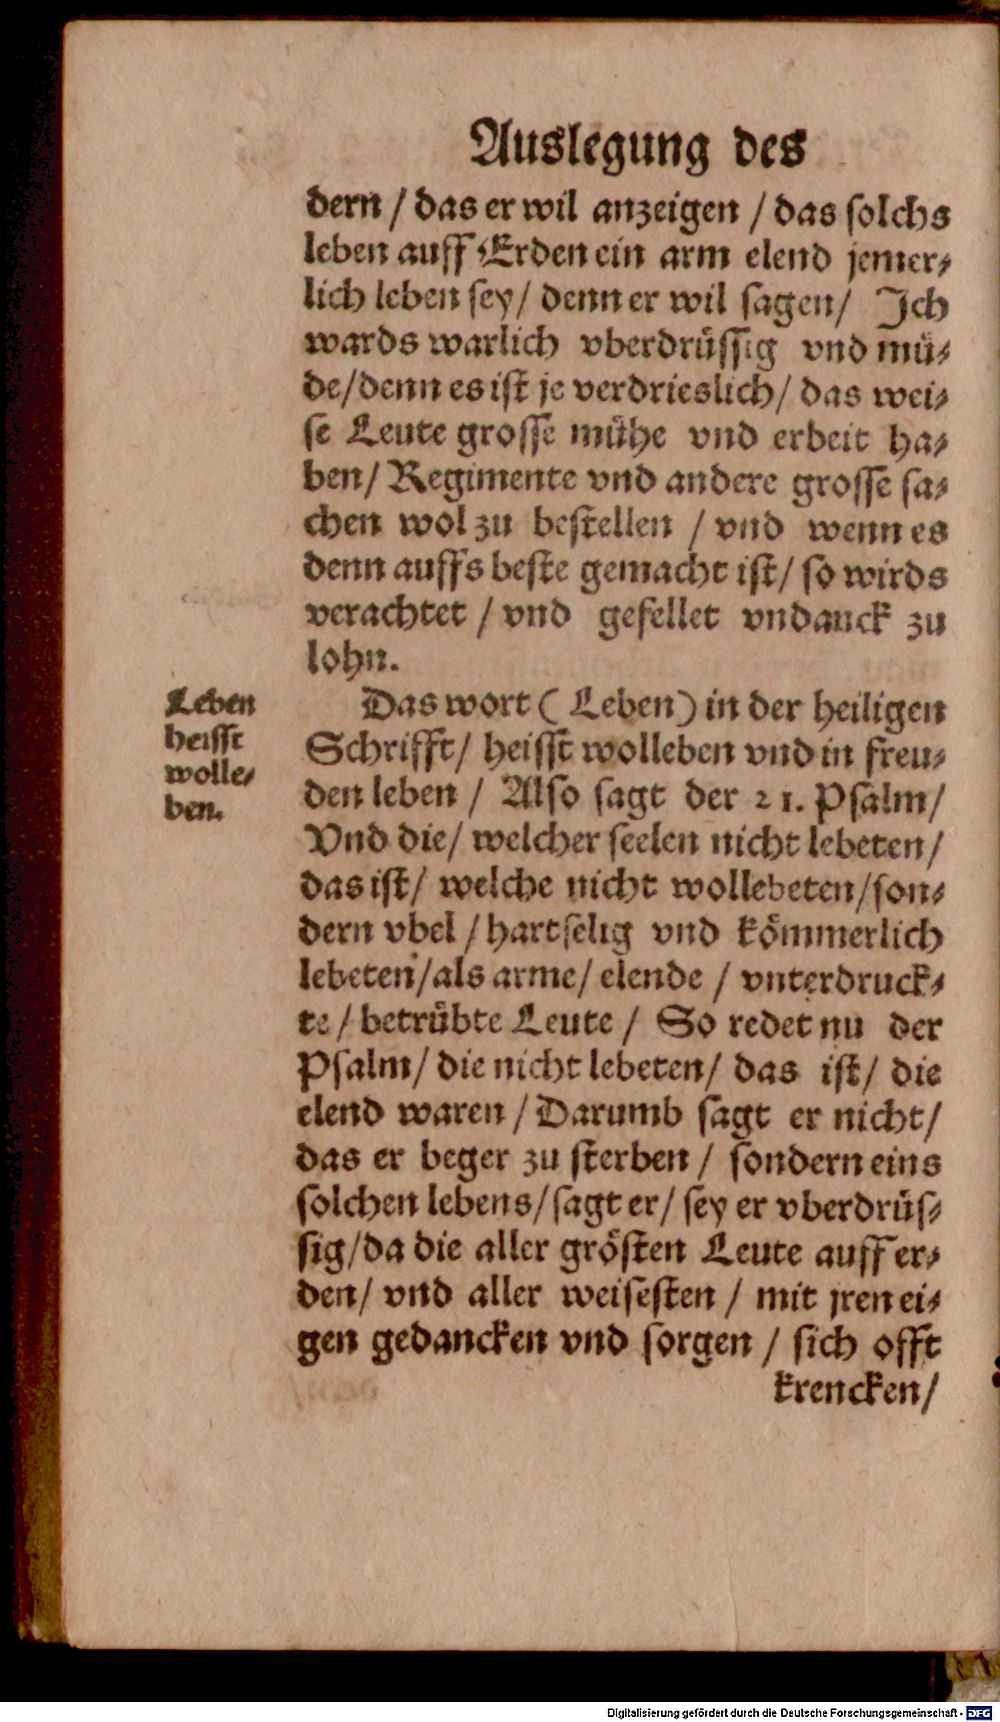 Auslegung des
dern / das er wil anzeigen / das solchs
leben auff Erden ein arm elend jemer⸗
lich leben sey / denn er wil sagen / Ich
wards warlich vberdrüssig vnd mü⸗
de / denn es ist je verdrieslich / das wei⸗
se Leute grosse mühe vnd erbeit ha⸗
ben / Regimente vnd andere grosse sa⸗
chen wol zu bestellen / vnd wenn es
denn auffs beste gemacht ist / so wirds
verachtet / vnd gefellet vndanck zu
lohn.
Leben
heisst
wolle⸗
ben.
Das wort ( Leben ) in der heiligen
Schrifft / heisst wolleben vnd in freu⸗
den leben / Also sagt der 21. Psalm /
Vnd die / welcher seelen nicht lebeten /
das ist / welche nicht wollebeten / son⸗
dern vbel / hartselig vnd kömmerlich
lebeten / als arme / elende / vnterdruck⸗
te / betrübte Leute / So redet nu der
Psalm / die nicht lebeten / das ist / die
elend waren / Darumb sagt er nicht /
das er beger zu sterben / sondern eins
solchen lebens / sagt er / sey er vberdrüs⸗
sig / da die aller grösten Leute auff er⸗
den / vnd aller weisesten / mit jren ei⸗
gen gedancken vnd sorgen / sich offt
krencken /
Digitalisierung gefördert durch die Deutsche Forschungsgemeinschaft - DFG